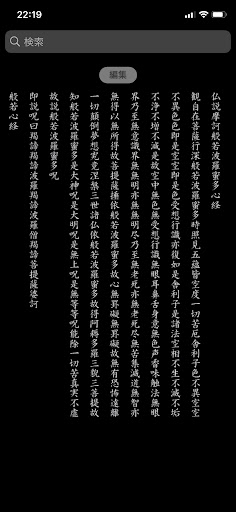 22:19
検索
編集
仏説摩訶般若波羅蜜多心経
観自在菩薩行深般若波羅蜜多時照見五蘊皆空度一切苦厄舎利子色不異空空
不異色色即是空空即是色受想行識亦復如是舎利子是諸法空相不生不滅不垢
不浄不増不減是故空中無色無受想行識無眼耳鼻舌身意無色声香味触法無眼
界乃至無意識界無無明亦無無明尽乃至無老死亦無老死尽無苦集滅道無智亦
無得以無所得故菩提薩埵依般若波羅蜜多故心無罣礙無罣礙故無有恐怖遠離
一切顛倒夢想究竟涅槃三世諸仏依般若波羅蜜多故得阿耨多羅三藐三菩提故
知般若波羅蜜多是大神呪是大明呪是無上呪是無等等呪能除一切苦真実不虚
故説般若波羅蜜多呪
即説呪曰羯諦羯諦波羅羯諦波羅僧羯諦菩提薩婆訶
般若心経